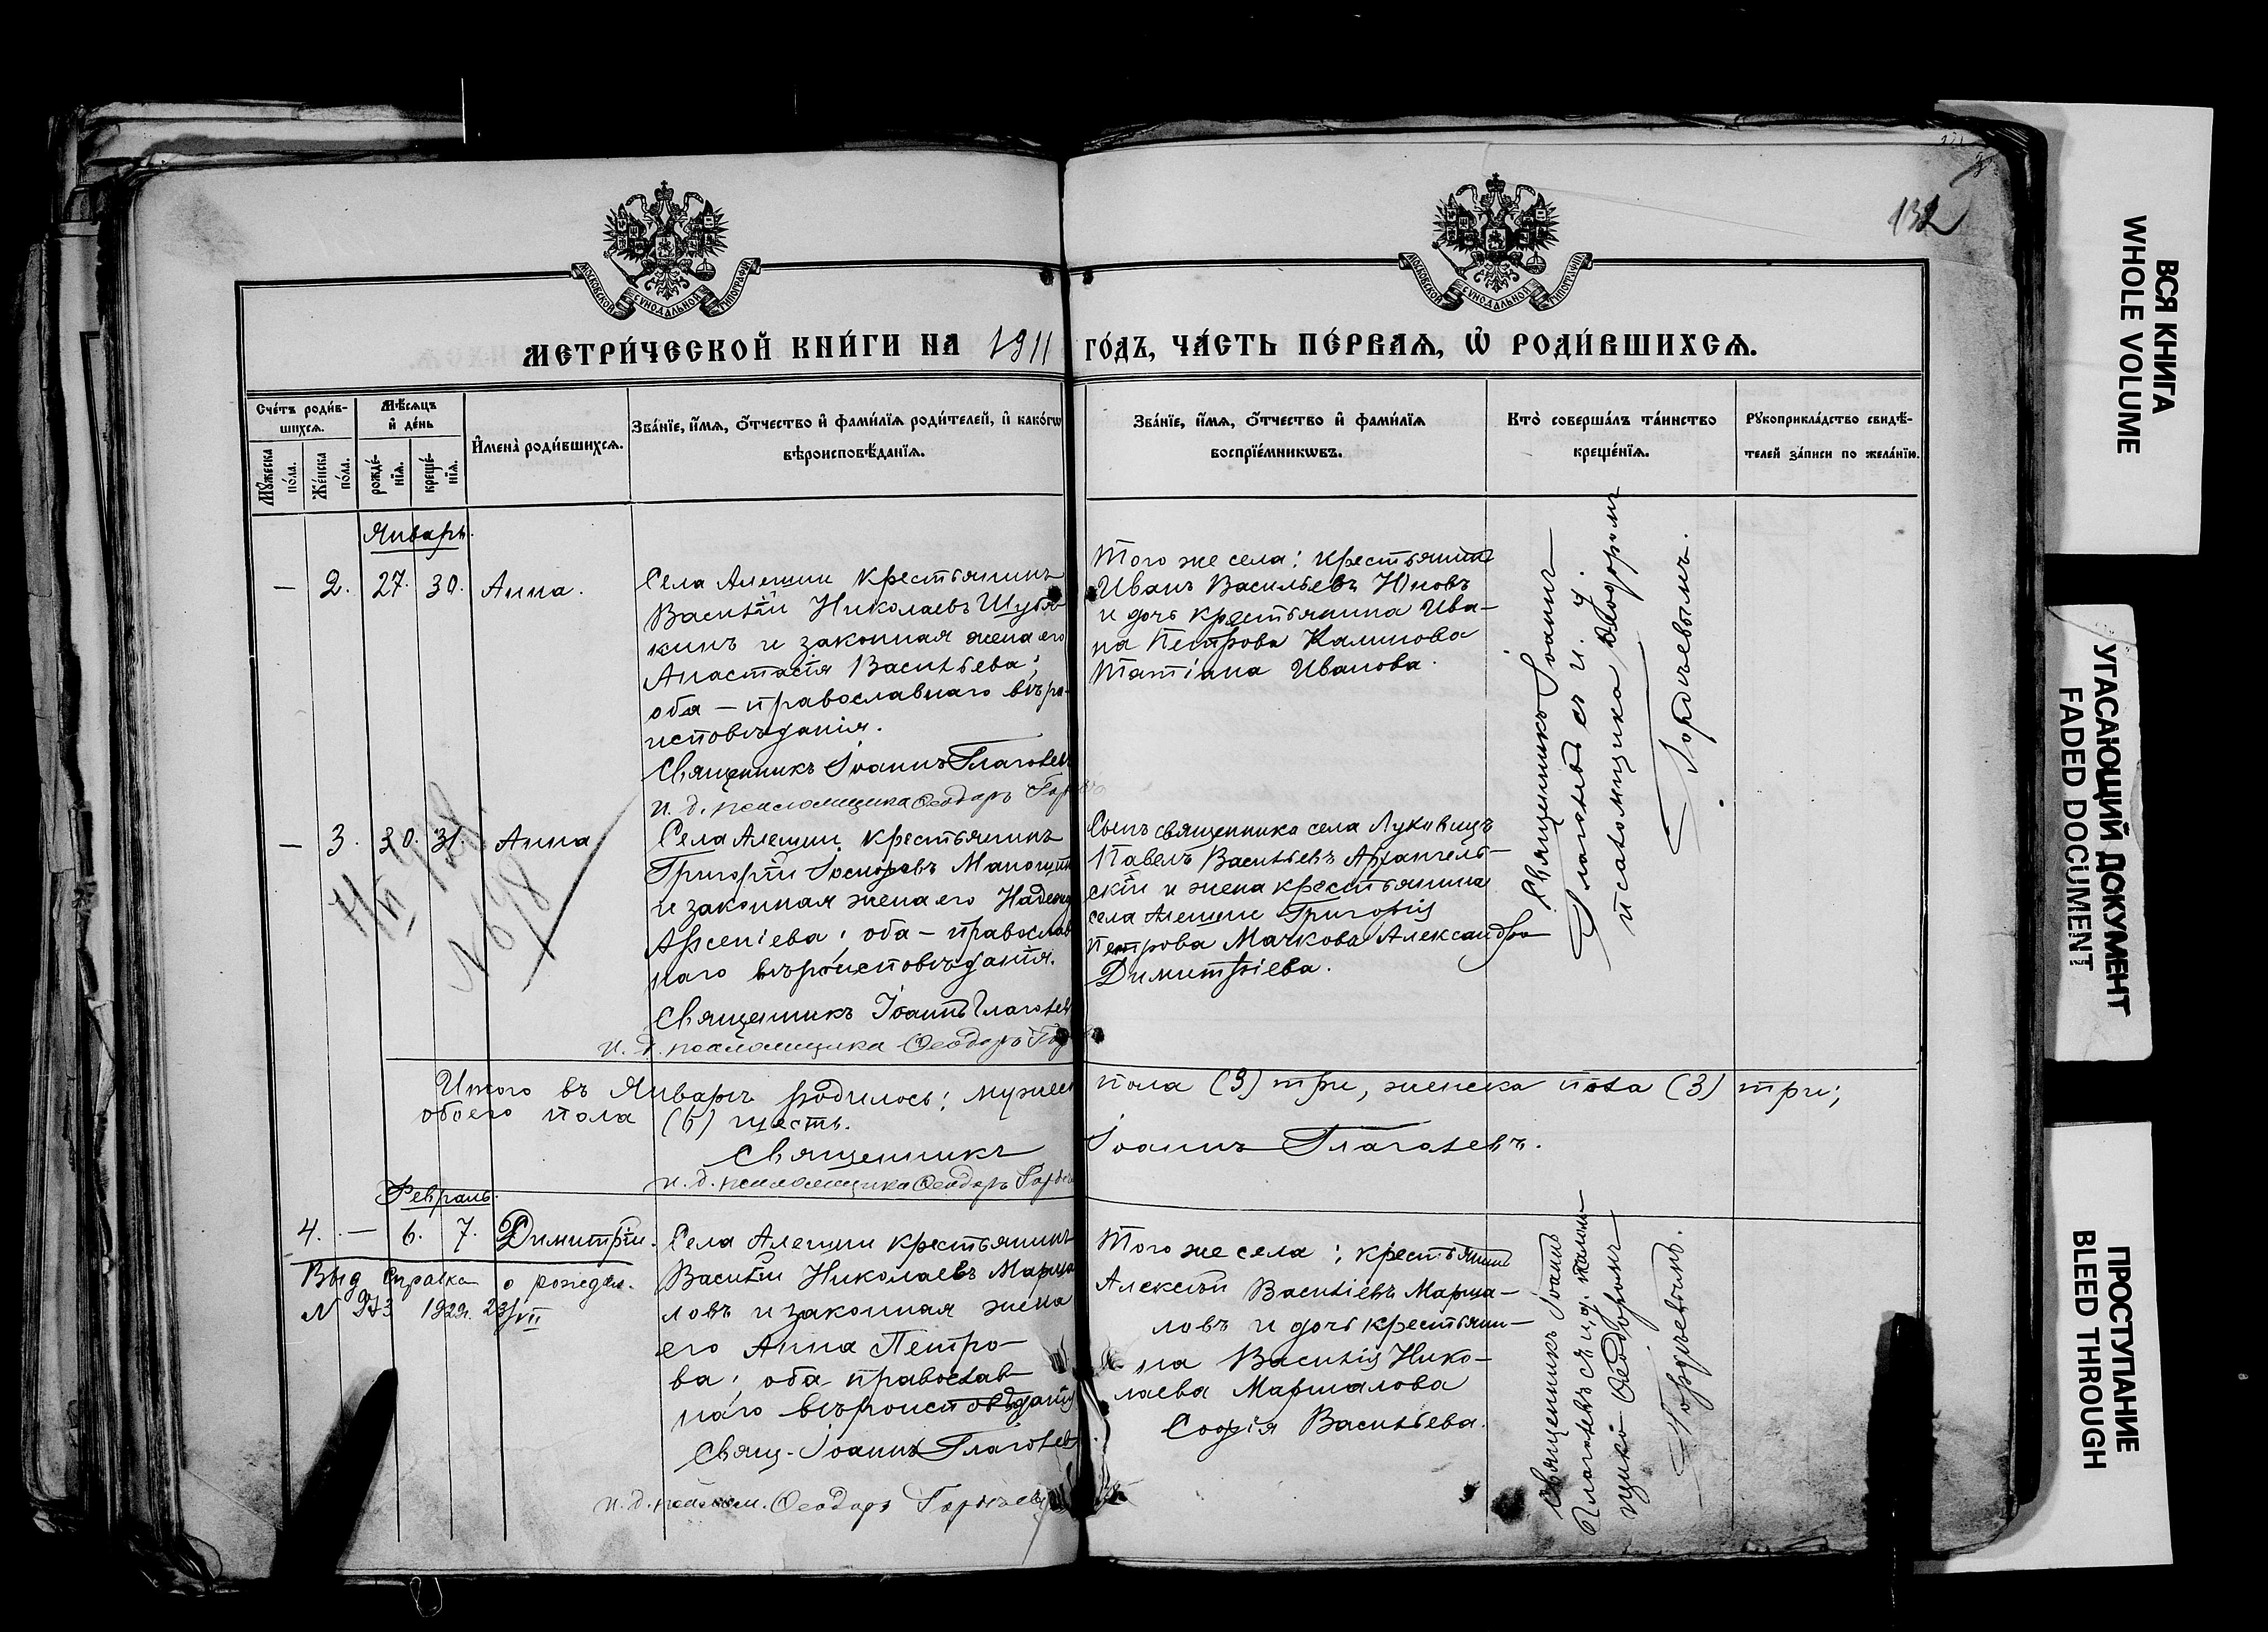 132
МОСКОВСКОЙ СѴНОДАЛЬНОЙ ТИПОГРАФІИ
МОСКОВСКОЙ СѴНОДАЛЬНОЙ ТИПОГРАФІИ
МЕТРИ́ЧЕСКОЙ КНИ́ГИ НА 1911 ГО́ДЪ, ЧА́СТЬ ПЕ́РВАѦ, Ѡ҆ РОДИ́ВШИХСѦ.
Сче́тъ роди́в-
шихсѧ.
Мꙋ́жеска по́ла.
Же́нска по́ла.
Мѣ́сѧцъ
и҆ де́нь
рожде́-
нїѧ.
креще́-
нїѧ.
И҆мена̀ роди́вшихсѧ.
Зва́нїе, и҆́мѧ, ѻ҆́тчество и҆ фами́лїѧ роди́телей, и҆ како́гѡ
вѣроисповѣ́данїѧ.
Зва́нїе, и҆́мѧ, ѻ҆́тчество и҆ фами́лїѧ
воспрїе́мникѡвъ.
Кто̀ соверша́лъ та́инство
креще́нїѧ.
Рꙋкоприкла́дство свидѣ́-
телей за́писи по жела́нїю.
Январь.
— 2. 27. 30. Анна.
Села Алешни крестьянинъ
Василій Николаевъ Шубя-
кинъ и законная жена его
Анастасія Васильева;
оба — православнаго вѣро-
исповѣданія.
Священникъ Іоаннъ Глаголевъ
и. д. псаломщика Ѳеодоръ
Того же села: крестьянинъ
Иванъ Васильевъ Юновъ
и дочь крестьянина Ива-
на Петрова Калинова
Татіана Иванова.
Священникъ Іоаннъ
Глаголевъ съ и. д.
псаломщика Ѳеодоромъ
Гордѣевымъ.
— 3. 30. 31. Анна
Села Алешни крестьянинъ
Григорій Іосифовъ
и законная жена его Надежда
Арсеніева; оба — православ
наго вѣроисповѣданія.
Священникъ Іоаннъ Глаголевъ
и. д. псаломщика Ѳеодоръ
Сынъ священника села Луковицъ
Павелъ Васильевъ Архангель-
скій и жена крестьянина
села Алешни Григорія
Петрова Мачкова Александра
Димитріева.
Итого въ Январѣ родилось: мужеск пола (3) три, женска пола (3) три;
обоего пола (6) шесть.
Священникъ Іоаннъ Глаголевъ.
и. д. псаломщика Ѳеодоръ
Февраль.
4. — 6. 7. Димитрій.
Села Алешни крестьянинъ
Василій Николаевъ Марша
ловъ и законная жена
его Анна Петро-
ва; оба православ
наго вѣроисповѣданія
Свящ. Іоаннъ Глаголев
и. д. псалом. Ѳеодоръ Гордѣевъ
Выд справка о рожден.
N 1929. 23/VII
Того же села: крестьянинъ
Алексѣй Василіевъ Марша-
ловъ и дочь крестьяни-
на Василія Нико-
лаева Маршалова
Софія Васильева.
Священникъ Іоаннъ
Глаголевъ съ и. д. псалом-
щика Ѳеодоромъ
Гордѣевымъ.
ВСЯ КНИГА
WHOLE VOLUME
УГАСАЮЩИЙ ДОКУМЕНТ
FADED DOCUMENT
ПРОСТУПАНИЕ
BLEED THROUGH